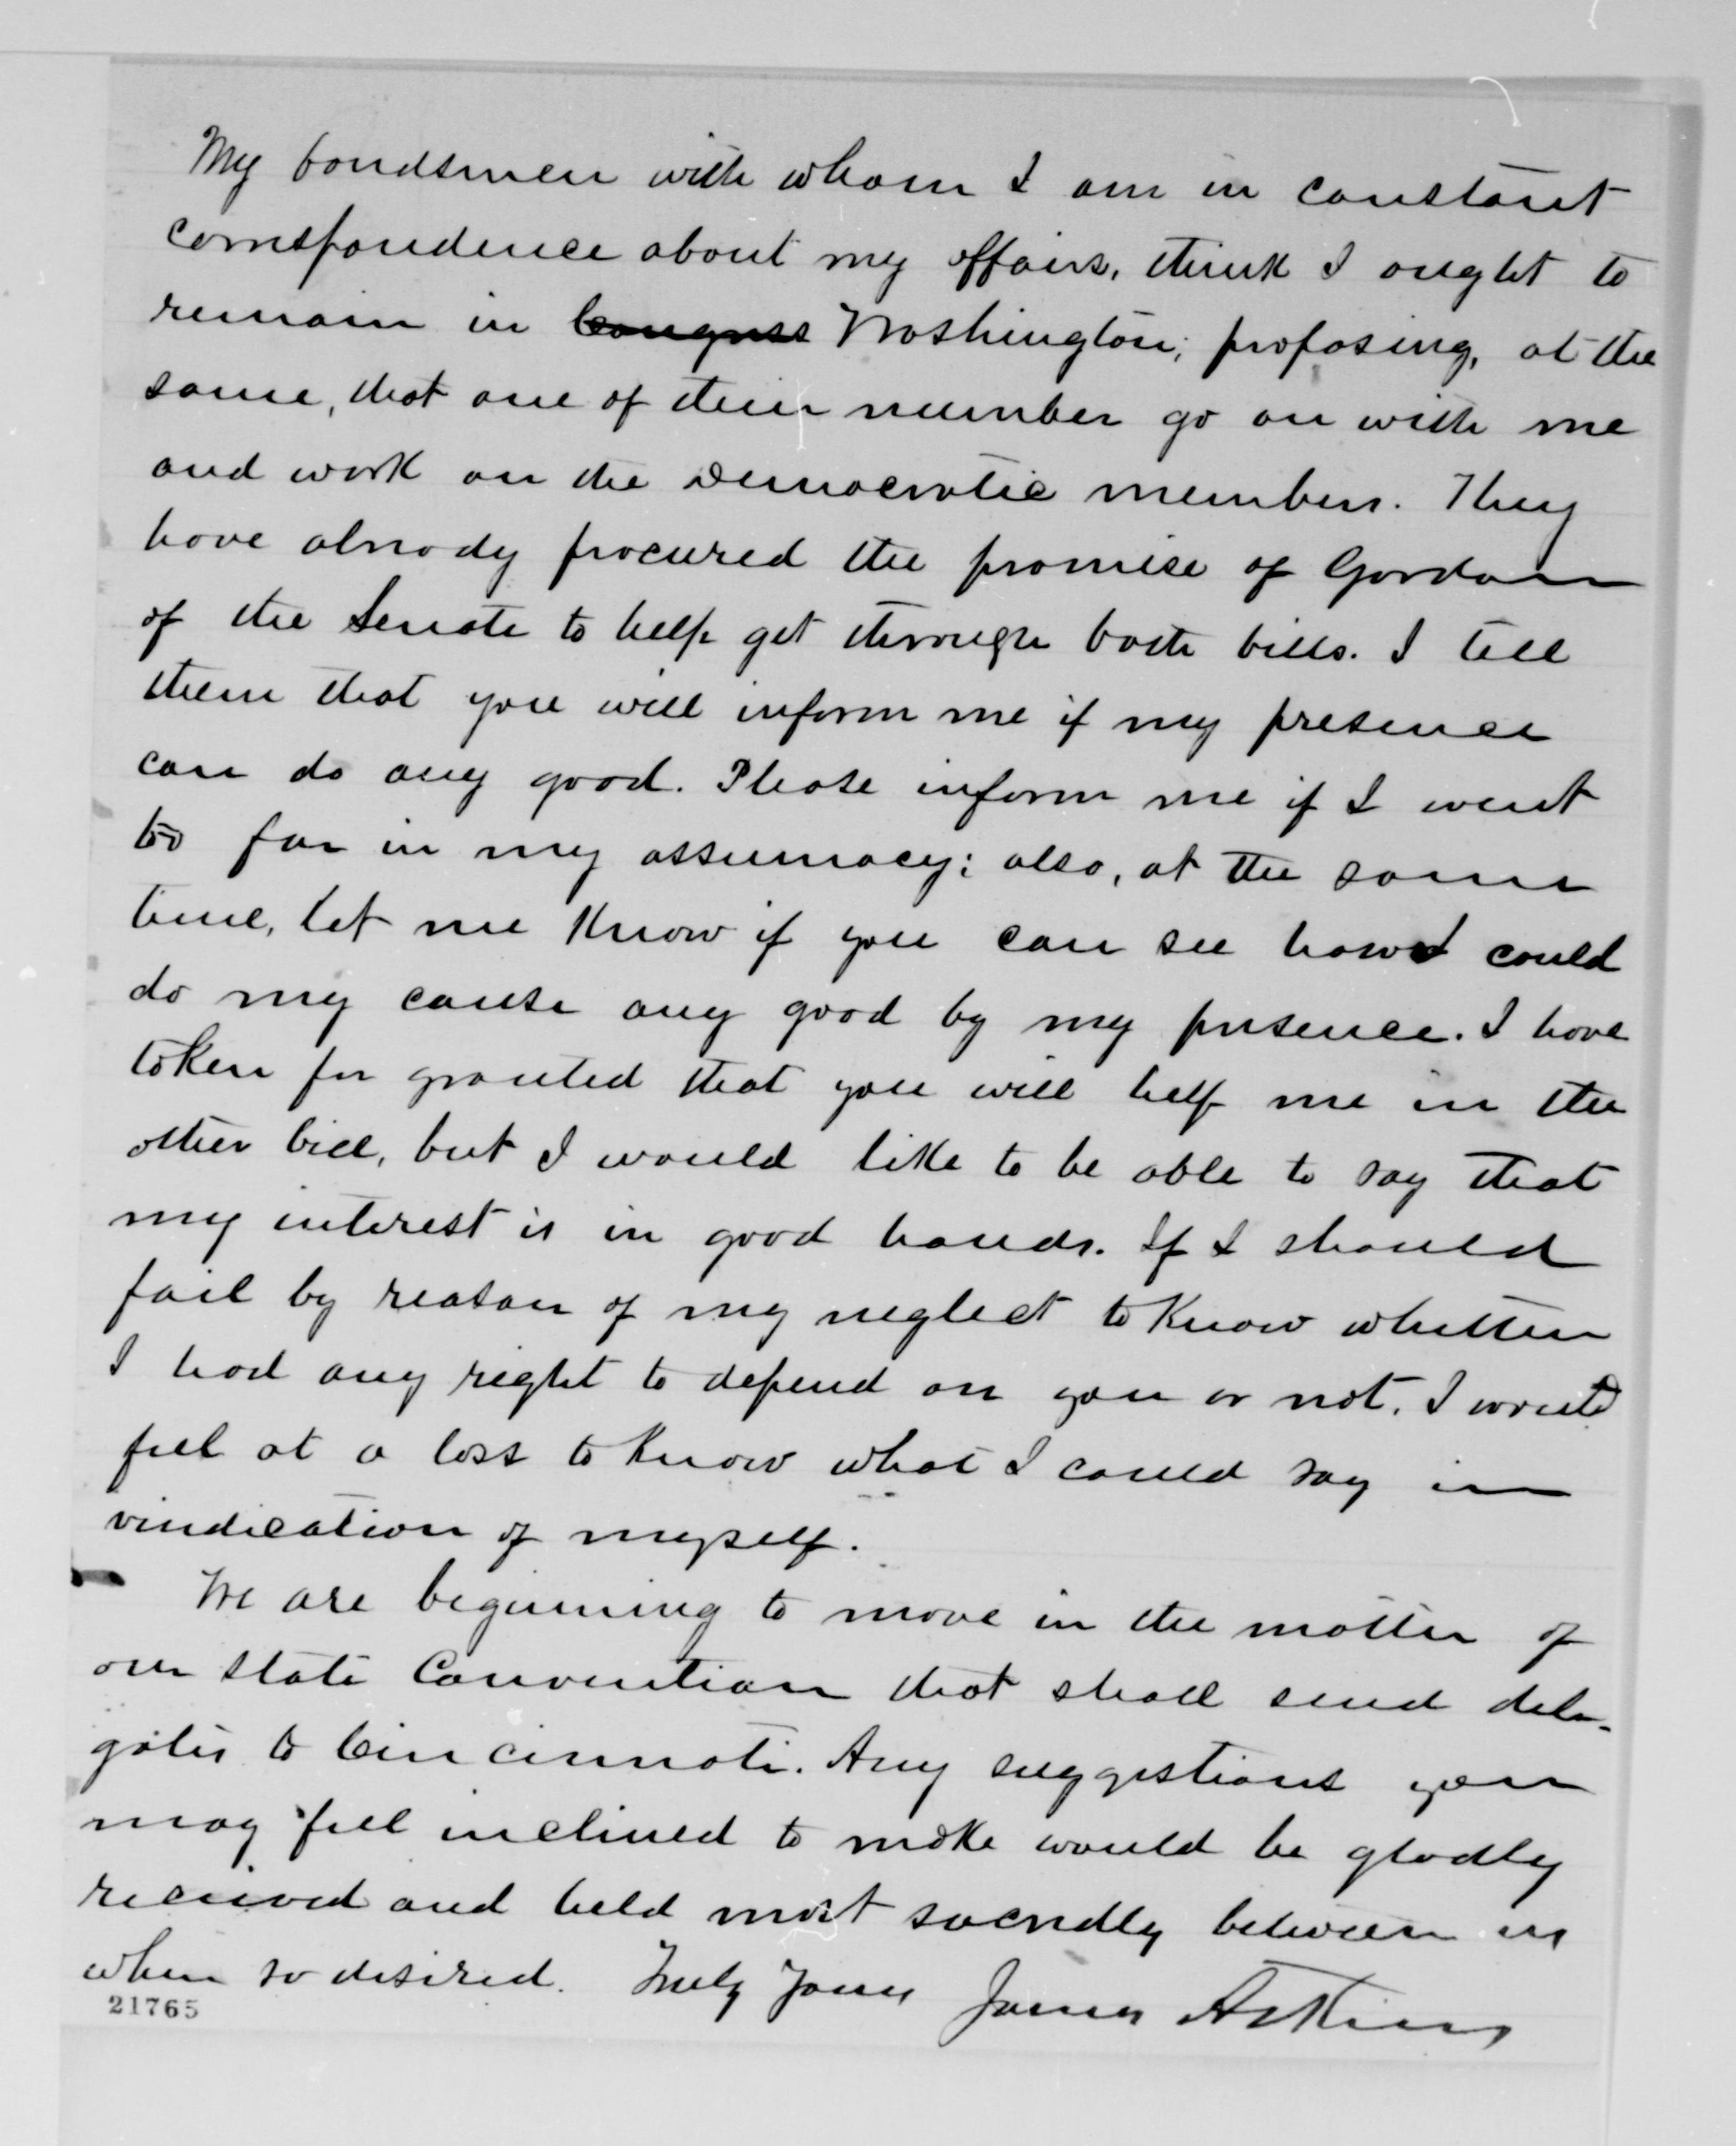 My bondsmen with whom I am in constant
correspondence about my affairs, think I ought to
remain in Congress Washington; proposing, at the
same, that one of their number go on with me
and work on the Democratic members. They
have already procured the promise of Gordon
of the Senate to help get through both bills. I tell
them that you will inform me if my presence
can do any good. Please inform me if I went
too far in my assumacy; also, at the same
time, let me know if you can see how I could
do my cause any good by my presence. I have
taken for granted that you will help me in the
other bill, but I would like to be able to say that
my interest is in good hands. If I should
fail by reason of my neglect to know whether
I had any right to depend on you or not, I would
feel at a loss to know what I could say in
vindication of myself.
We are beginning to move in the matter of
our State Convention that shall send dele-
gates to Cincinnati. Any suggestions you
may feel inclined to make would be gladly
received and held most sacredly between us
when so desired. Truly Yours James Atkins
21765